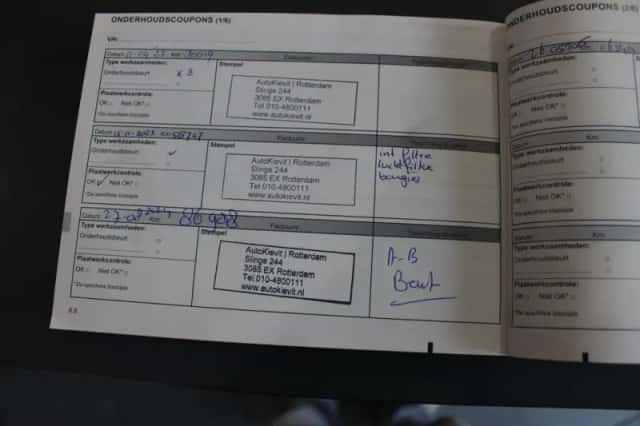 ONDERHOUDSCOUPONS (1/6)
VIN:
Datum: Km: Factuur:
Type werkzaamheden: Stempel
Onderhoudsbeurt x B
Plaatwerkcontrole:
OK Niet OK*
*Zie specifieke bladzijde
AutoKievit | Rotterdam
Slinge 244
3085 EX Rotterdam
Tel 010-4800111
www.autokievit.nl
Datum: Factuur:
Type werkzaamheden: Stempel
Onderhoudsbeurt ✓
Plaatwerkcontrole:
OK ✓ Niet OK*
*Zie specifieke bladzijde
AutoKievit | Rotterdam
Slinge 244
3085 EX Rotterdam
Tel 010-4800111
www.autokievit.nl
int filtre
bougies
Datum: Km: Factuur:
Type werkzaamheden: Stempel
Onderhoudsbeurt
Plaatwerkcontrole:
OK Niet OK*
*Zie specifieke bladzijde
AutoKievit | Rotterdam
Slinge 244
3085 EX Rotterdam
Tel 010-4800111
www.autokievit.nl
A-B
Beurt
ONDERHOUDSCOUPONS (2/6)
VIN:
Type werkzaamheden:
Onderhoudsbeurt
Plaatwerkcontrole:
OK Niet OK*
*Zie specifieke bladzijde
Datum: Km:
Type werkzaamheden:
Onderhoudsbeurt
Plaatwerkcontrole:
OK Niet OK*
*Zie specifieke bladzijde
Datum: Km:
Type werkzaamheden:
Onderhoudsbeurt
Plaatwerkcontrole:
OK Niet OK*
*Zie specifieke bladzijde